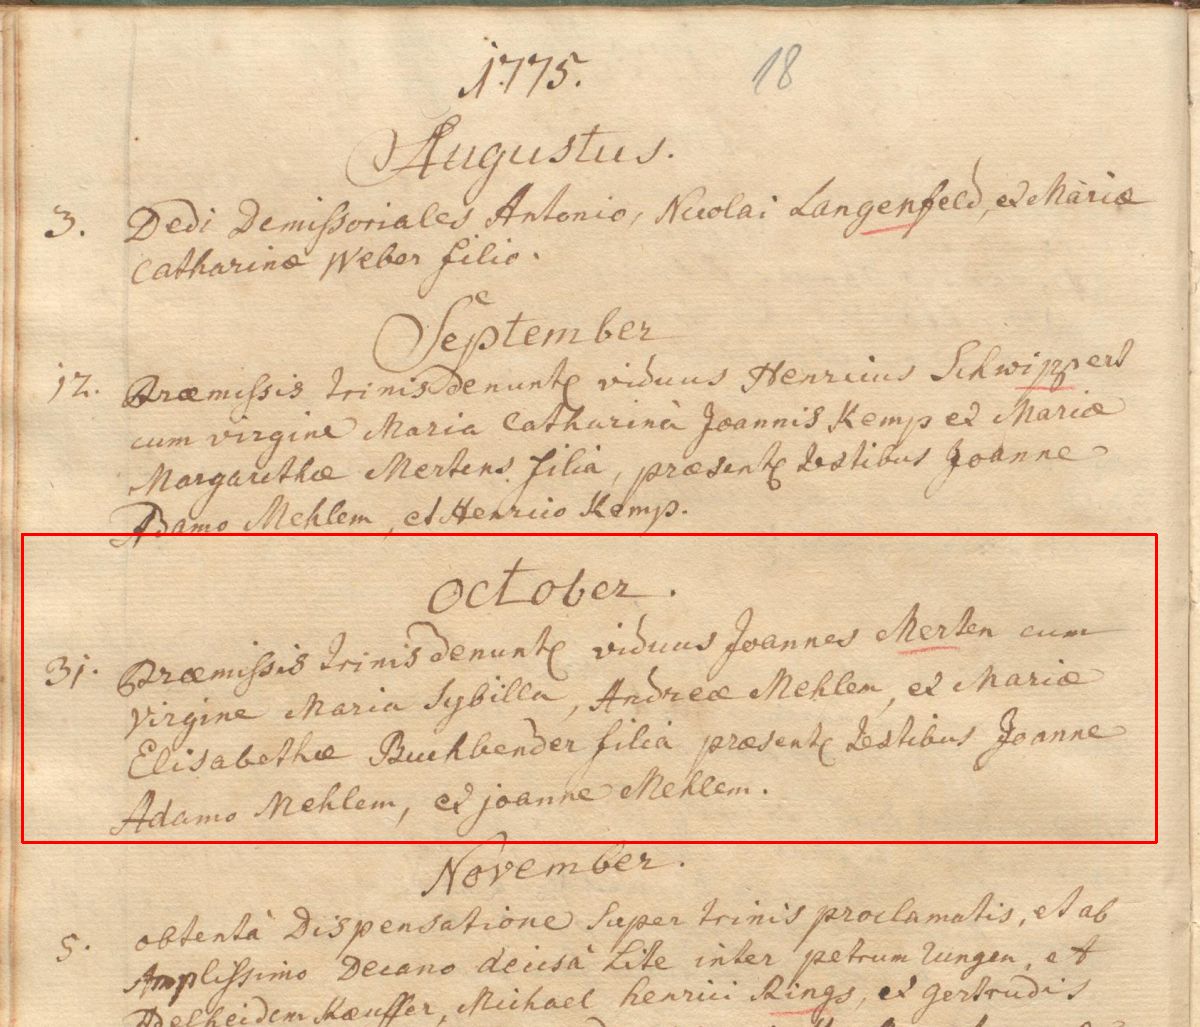 1775.
18
Augustus.
3. Dedi Demissoriales Antonio, Nicolai Langenfeld, et Mariæ
Catharinæ Weber filio.
September
12. Præmissis trinis denunt. viduus Henricus Schwippert
cum virgine Maria Catharinà Joannis Kemp et Mariæ
Margarethæ Mertens filià, præsent. testibus Joanne
Adamo Mehlem, et Henrico Kemp.
October.
31. Præmissis trinis denunt. viduus Joannes Merten cum
Virgine Maria Sybilla, Andreæ Mehlem, et Mariæ
Elisabethæ Buchbender filià præsent. testibus Joanne
Adamo Mehlem, et joanne Mehlem.
November.
5. obtentà Dispensatione super trinis proclamatis, et ab
Amplissimo Decano decisà Lite inter petrum Jungen, et
Adelheidem Kæuffer, Michael henrici Rings, et gertrudis